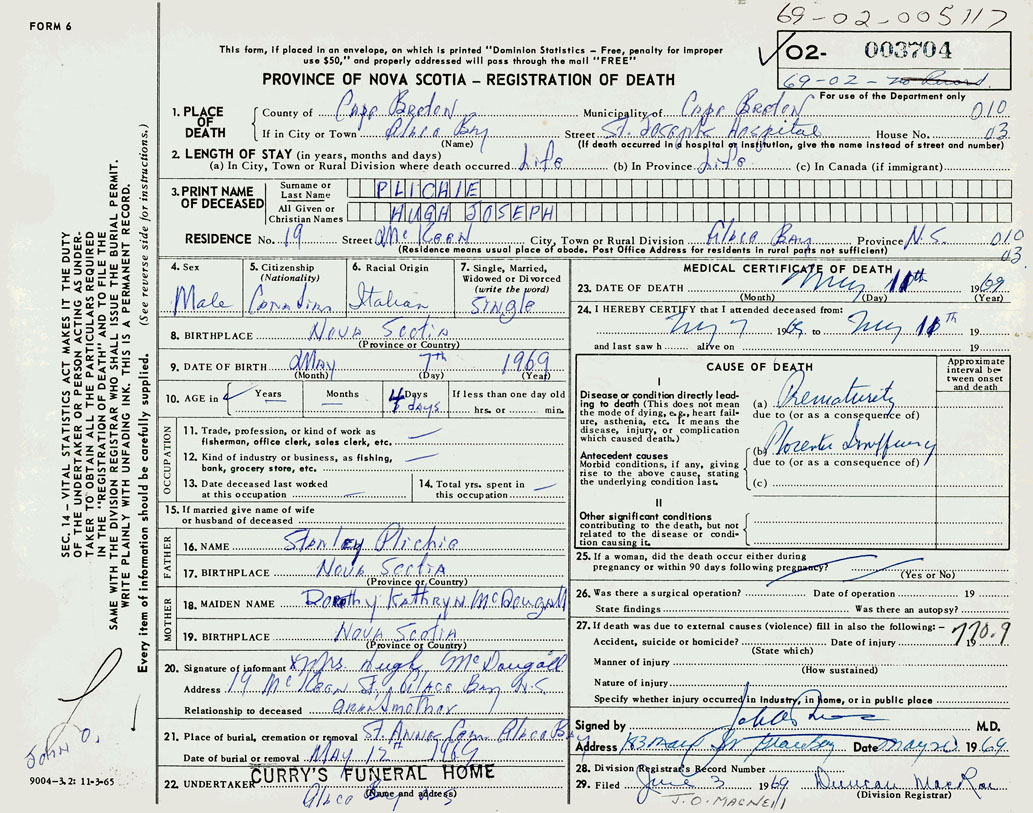 FORM 6
69-02-005117
This form, if placed in an envelope, on which is printed "Dominion Statistics – Free, penalty for improper
use $50," and properly addressed will pass through the mail "FREE"
PROVINCE OF NOVA SCOTIA – REGISTRATION OF DEATH
02- 003704
69-02-
For use of the Department only
1. PLACE OF DEATH
County of Cape Breton Municipality of Cape Breton 010
If in City or Town Glace Bay Street St. Josephs Hospital House No. 03
(Name) (If death occurred in a hospital or institution, give the name instead of street and number)
2. LENGTH OF STAY (in years, months and days)
(a) In City, Town or Rural Division where death occurred Life (b) In Province Life (c) In Canada (if immigrant)
3. PRINT NAME OF DECEASED
Surname or Last Name PLICHIE
All Given or Christian Names HUGH JOSEPH
RESIDENCE No. 19 Street McKeen City, Town or Rural Division Glace Bay Province N.S. 010
(Residence means usual place of abode. Post Office Address for residents in rural parts not sufficient) 03
4. Sex Male
5. Citizenship (Nationality) Canadian
6. Racial Origin Italian
7. Single, Married, Widowed or Divorced (write the word) Single
8. BIRTHPLACE Nova Scotia
(Province or Country)
9. DATE OF BIRTH May 7th 1969
(Month) (Day) (Year)
10. AGE in Years Months 4 Days days If less than one day old hrs. or min.
OCCUPATION
11. Trade, profession, or kind of work as fisherman, office clerk, sales clerk, etc.
12. Kind of industry or business, as fishing, bank, grocery store, etc.
13. Date deceased last worked at this occupation
14. Total yrs. spent in this occupation
15. If married give name of wife or husband of deceased
FATHER
16. NAME Stanley Plichie
17. BIRTHPLACE Nova Scotia
(Province or Country)
MOTHER
18. MAIDEN NAME Dorothy Kathryn McDougall
19. BIRTHPLACE Nova Scotia
(Province or Country)
20. Signature of informant x Mrs Hugh McDougall
Address 19 McKeen St., Glace Bay N.S.
Relationship to deceased Grandmother
21. Place of burial, cremation or removal St. Anns Cem. Glace Bay
Date of burial or removal May 12th 1969
22. UNDERTAKER CURRY'S FUNERAL HOME
(Name and address) Glace Bay N.S.
MEDICAL CERTIFICATE OF DEATH
23. DATE OF DEATH May 11th 1969
(Month) (Day) (Year)
24. I HEREBY CERTIFY that I attended deceased from:
May 7 1969 to May 11th 19
and last saw h alive on 19
CAUSE OF DEATH
Approximate interval between onset and death
I
Disease or condition directly leading to death (This does not mean the mode of dying, e.g., heart failure, asthenia, etc. It means the disease, injury, or complication which caused death.)
(a) Prematurity
due to (or as a consequence of)
Antecedent causes
Morbid conditions, if any, giving rise to the above cause, stating the underlying condition last.
(b) Placenta
due to (or as a consequence of)
(c)
II
Other significant conditions
contributing to the death, but not related to the disease or condition causing it.
25. If a woman, did the death occur either during pregnancy or within 90 days following pregnancy?
(Yes or No)
26. Was there a surgical operation? Date of operation 19
State findings Was there an autopsy?
27. If death was due to external causes (violence) fill in also the following: – 770.9
Accident, suicide or homicide? Date of injury 19
(State which)
Manner of injury
(How sustained)
Nature of injury
Specify whether injury occurred in industry, in home, or in public place
Signed by M.D.
Address Date May 1969
28. Division Registrar's Record Number
29. Filed June 3 1969 Duncan MacRae
(Division Registrar)
J.O. MACNEIL
SEC. 14 – VITAL STATISTICS ACT MAKES IT THE DUTY
OF THE UNDERTAKER OR PERSON ACTING AS UNDER-
TAKER TO OBTAIN ALL THE PARTICULARS REQUIRED
IN THE "REGISTRATION OF DEATH" AND TO FILE THE
SAME WITH THE DIVISION REGISTRAR WHO SHALL ISSUE THE BURIAL PERMIT.
WRITE PLAINLY WITH UNFADING INK. THIS IS A PERMANENT RECORD.
Every item of information should be carefully supplied. (See reverse side for instructions.)
John O.
9004-3.2: 11-3-65